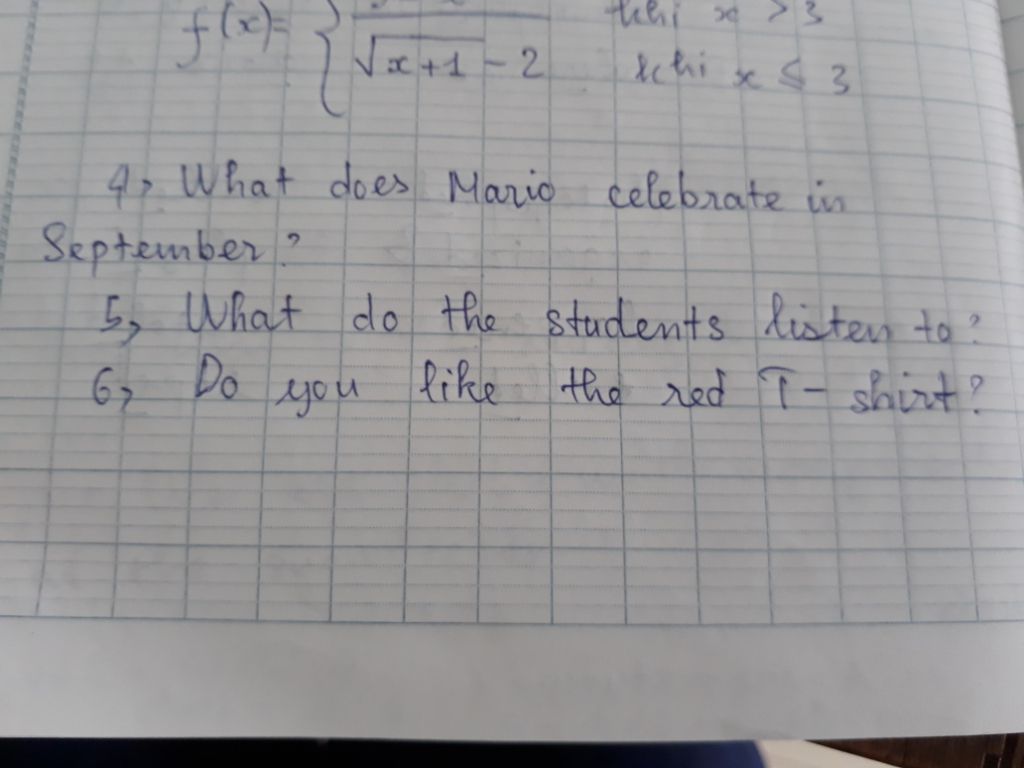 khi x > 3
f(x)= { √x+1 - 2 khi x ≤ 3
4, What does Mario celebrate in
September?
5, What do the students listen to?
6, Do you like the red T- shirt?